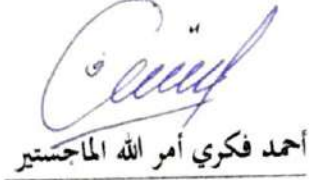 أحمد فكري أمر الله الماجستير